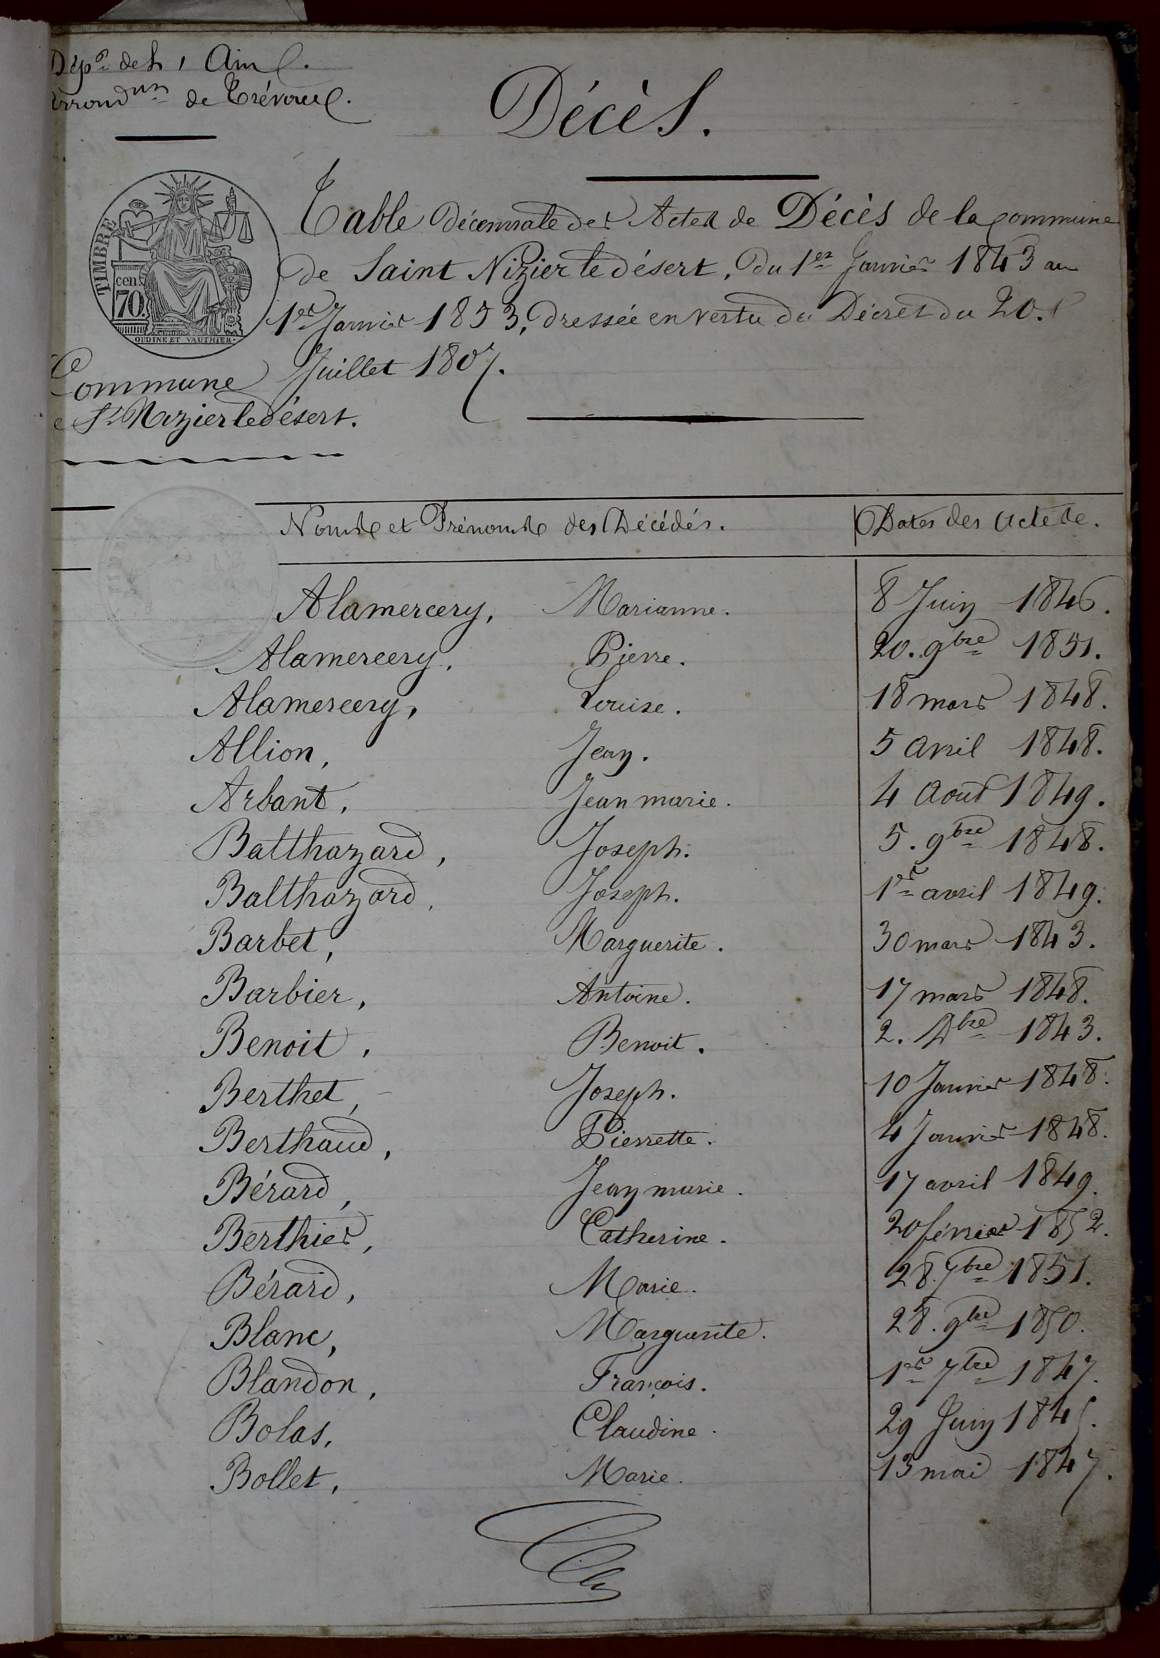 Dép.t de l'Ain.
arrond.nt de Trévoux.
Décès.
TIMBRE
cen.s
70
OUDINE ET VAUTHIER.
Table Décennale des Actes de Décès de la commune
de Saint Nizier le désert, du 1er Janvier 1843 au
1er Janvier 1853, dressée en vertu du Décret du 20.
Juillet 1807.
Commune
St Nizier le désert.
Noms et Prénoms des Décédés. Dates des Actes.
Alamercery, Marianne. 8 Juin 1846.
Alamercery, Pierre. 20. 9bre 1851.
Alamercery, Louise. 18 mars 1848.
Allion, Jean. 5 avril 1848.
Arbant, Jean marie. 4 Août 1849.
Balthazard, Joseph. 5. 9bre 1848.
Balthazard, Joseph. 1er avril 1849.
Barbet, Marguerite. 30 mars 1843.
Barbier, Antoine. 17 mars 1848.
Benoit, Benoit. 2. Xbre 1843.
Berthet, Joseph. 10 Janvier 1848.
Berthaud, Pierrette. 4 Janvier 1848.
Bérard, Jean marie. 17 avril 1849.
Berthier, Catherine. 20 février 1852.
Bérard, Marie. 28. 7bre 1851.
Blanc, Marguerite. 28. 9bre 1850.
Blandon, François. 1er 7bre 1847.
Bolas, Claudine. 29 Juin 1845.
Bollet, Marie. 13 mai 1847.